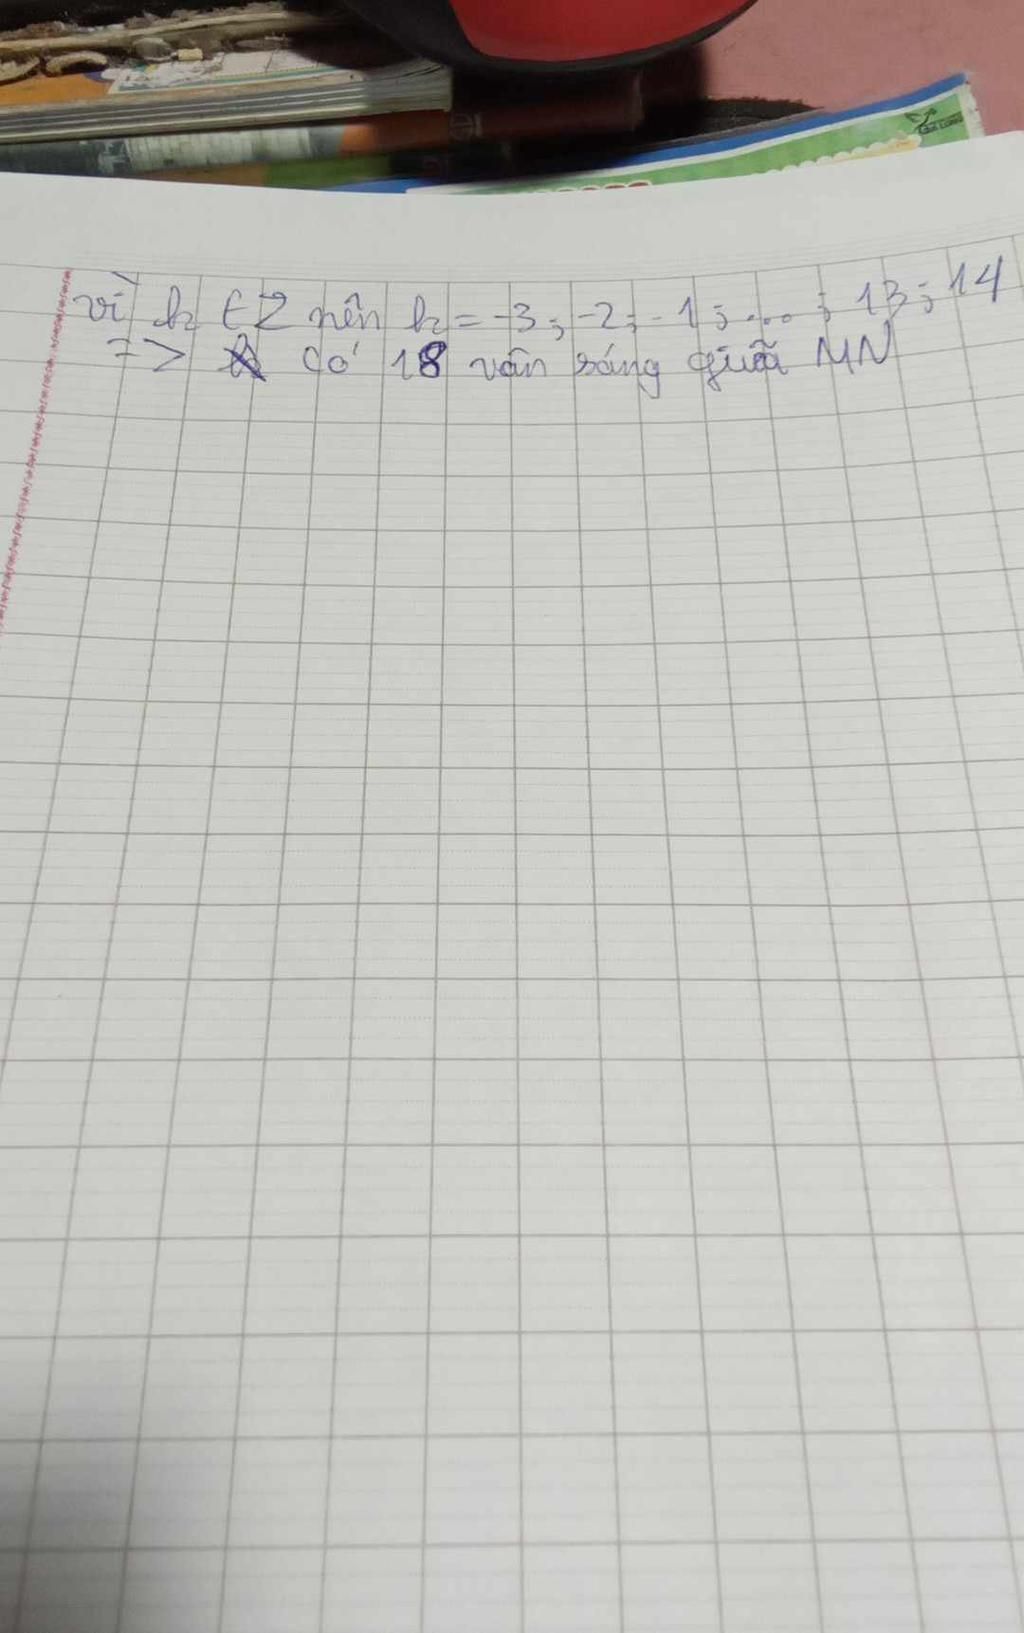 vì k ∈ Z nên k = -3; -2; -1; ... ; 13; 14
=> có 18 vân sáng giữa MN